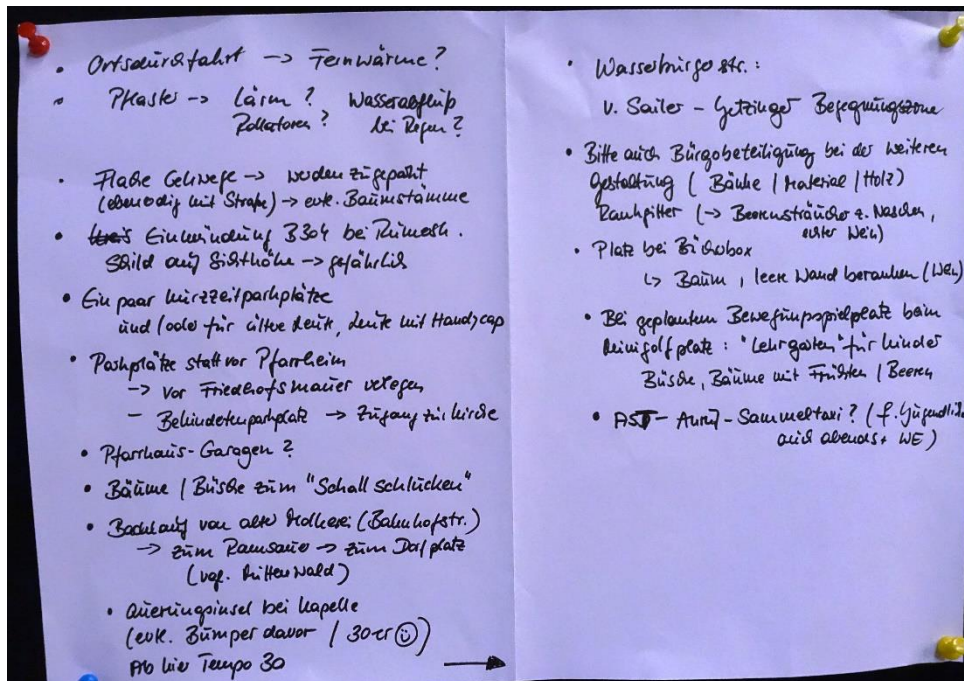 • Ortsdurchfahrt → Fernwärme?
• Pflaster → Lärm? Wasserabfluß
Rollatoren? bei Regen?
• Flache Gehwege → werden zugeparkt
(ebenerdig mit Straße) → evtl. Baumstämme
• Einmündung B304 bei
Schild auf Sichthöhe → gefährlich
• Ein paar Kurzzeitparkplätze
und/oder für ältere Leute, Leute mit Handycap
• Parkplätze statt vor Pfarrheim
→ vor Friedhofsmauer verlegen
– Behindertenparkplatz → Zugang zur Kirche
• Pfarrhaus-Garagen?
• Bäume / Büsche zum "Schall schlucken"
• Bachlauf von alter Molkerei (Bahnhofstr.)
→ zum Ramsauer → zum Dorfplatz
(vgl. Mittenwald)
• Querungsinsel bei Kapelle
(evtl. Bumper davor / 30er ☺)
Ab hier Tempo 30
→
• Wasserburger Str.:
v. Sailer – Getzinger Begegnungszone
• Bitte auch Bürgerbeteiligung bei der weiteren
Gestaltung (Bänke / Material / Holz)
Rankgitter (→ Beerensträucher z. Naschen,
echter Wein)
• Platz bei Bücherbox
↳ Baum, leere Wand beranken (Wein)
• Bei geplantem Bewegungsspielplatz beim
Minigolfplatz: "Lehrgarten" für Kinder
Büsche, Bäume mit Früchten / Beeren
• AST – Anruf-Sammeltaxi? (f. Jugendliche
auch abends + WE)